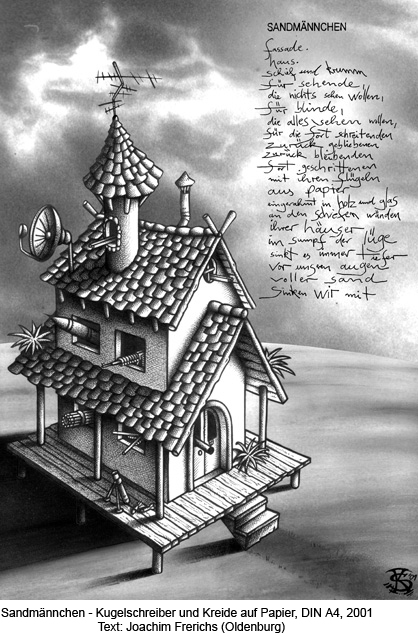 SANDMÄNNCHEN
fassade.
haus.
schief und krumm
für sehende,
die nichts sehen wollen,
für blinde,
die alles sehen wollen,
für die fort schreitenden
zurück gebliebenen
zurück bleibenden
fort geschrittenen
mit ihren flügeln
aus papier
eingerahmt in holz und glas
an den schiefen wänden
ihrer häuser
im sumpf der lüge
sinkt es immer tiefer
vor unsren augen
voller sand
sinken wir mit
Sandmännchen - Kugelschreiber und Kreide auf Papier, DIN A4, 2001
Text: Joachim Frerichs (Oldenburg)